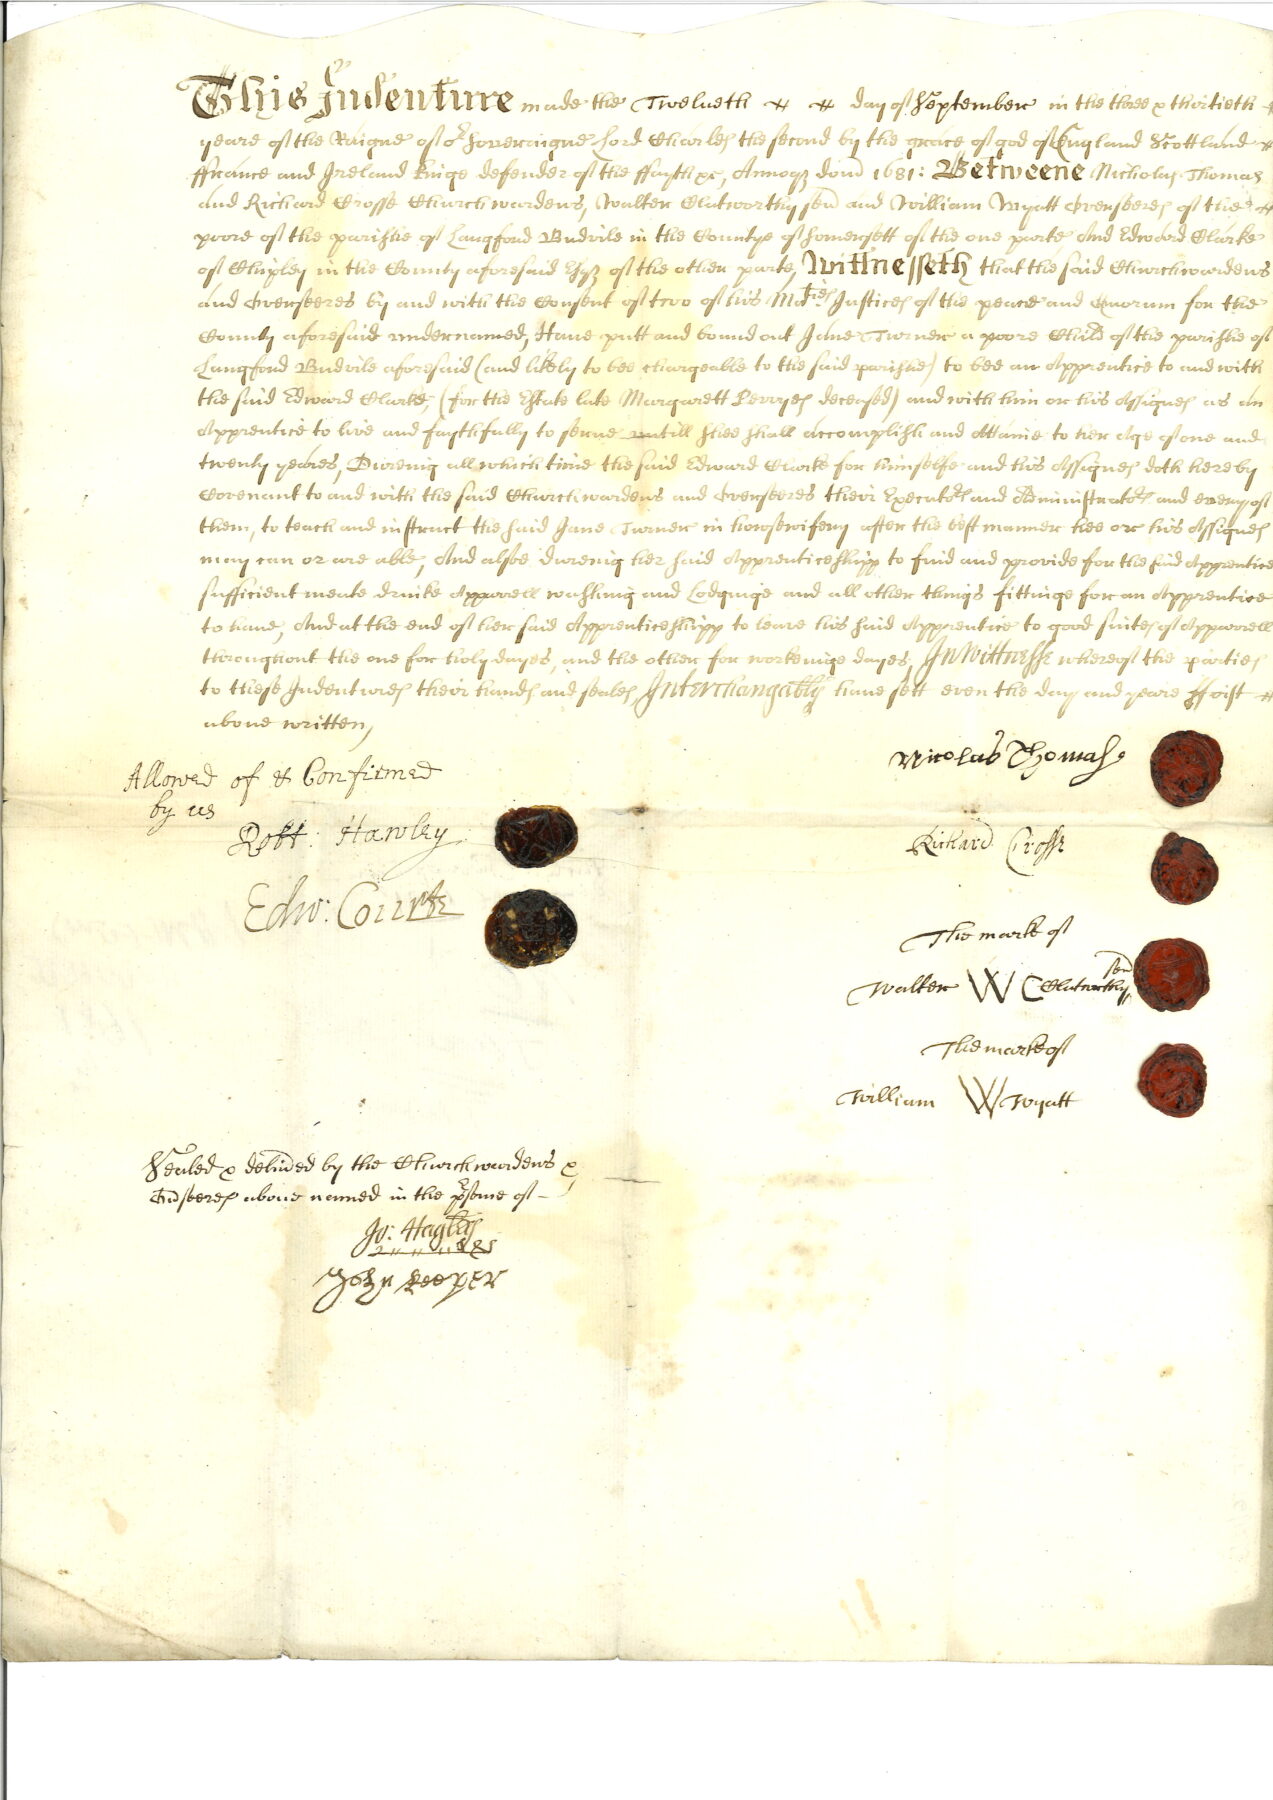 This Indenture made the Twelueth day of September in the three & thirtieth
yeare of the Raigne of or Soveraigne Lord Charles the second by the grace of god of England Scottland
ffrance and Ireland Kinge defender of the ffayth &c, Annoq domi 1681: Betweene Nicholas Thomas
and Richard Crosse Churchwardens, Walter Clutworthy senr and William Wyatt Overseeres of the
poore of the parishe of Langford Budvile in the Countye of Somersett of the one parte And Edward Clarke
of Chipley in the County aforesaid Esqr of the other parte, Wittnesseth that the said Churchwardens
and Overseeres by and with the Consent of two of his Maties Justices of the peace and Quorum for the
County aforesaid undernamed, Have putt and bound out Jane Turner a poore Child of the parishe of
Langford Budvile aforesaid (and likely to bee chargeable to the said parishe) to bee an Apprentice to and with
the said Edward Clarke, (for the Estate late Margarett Perryes deceased) and with him or his Assignes as an
Apprentice to live and faythfully to serve untill shee shall accomplish and Attaine to her Age of one and
twenty yeares, Dureing all which time the said Edward Clarke for himselfe and his Assignes doth hereby
Covenant to and with the said Churchwardens and Overseeres their Executors and Administrators and every of
them, to teach and instruct the said Jane Turner in howsewifery after the best manner hee or his Assignes
may can or are able, And alsoe dureing her said Apprenticeshipp to find and provide for the said Apprentice
sufficient meate drinke Apparrell washing and Lodginge and all other things fittinge for an Apprentice
to have, And at the end of her said Apprenticeshipp to leave his said Apprentice to good suites of Apparrell
throughout the one for holydayes, and the other for workeinge dayes, In Wittnesse whereof the parties
to these Indentures their hands and seales, Interchangably have sett even the day and yeare ffirst
above written,
Nicolas Thomas
Allowed of & Confirmed
by us
Robt: Hawley
Richard Crosse
Edw: Courte
The marke of
Walter W Clutworthy senr
The marke of
William W Wyatt
Sealed & delived by the Churchwardens &
Ovrseeres above named in the prsence of
Jo: Hagley
John Keeper